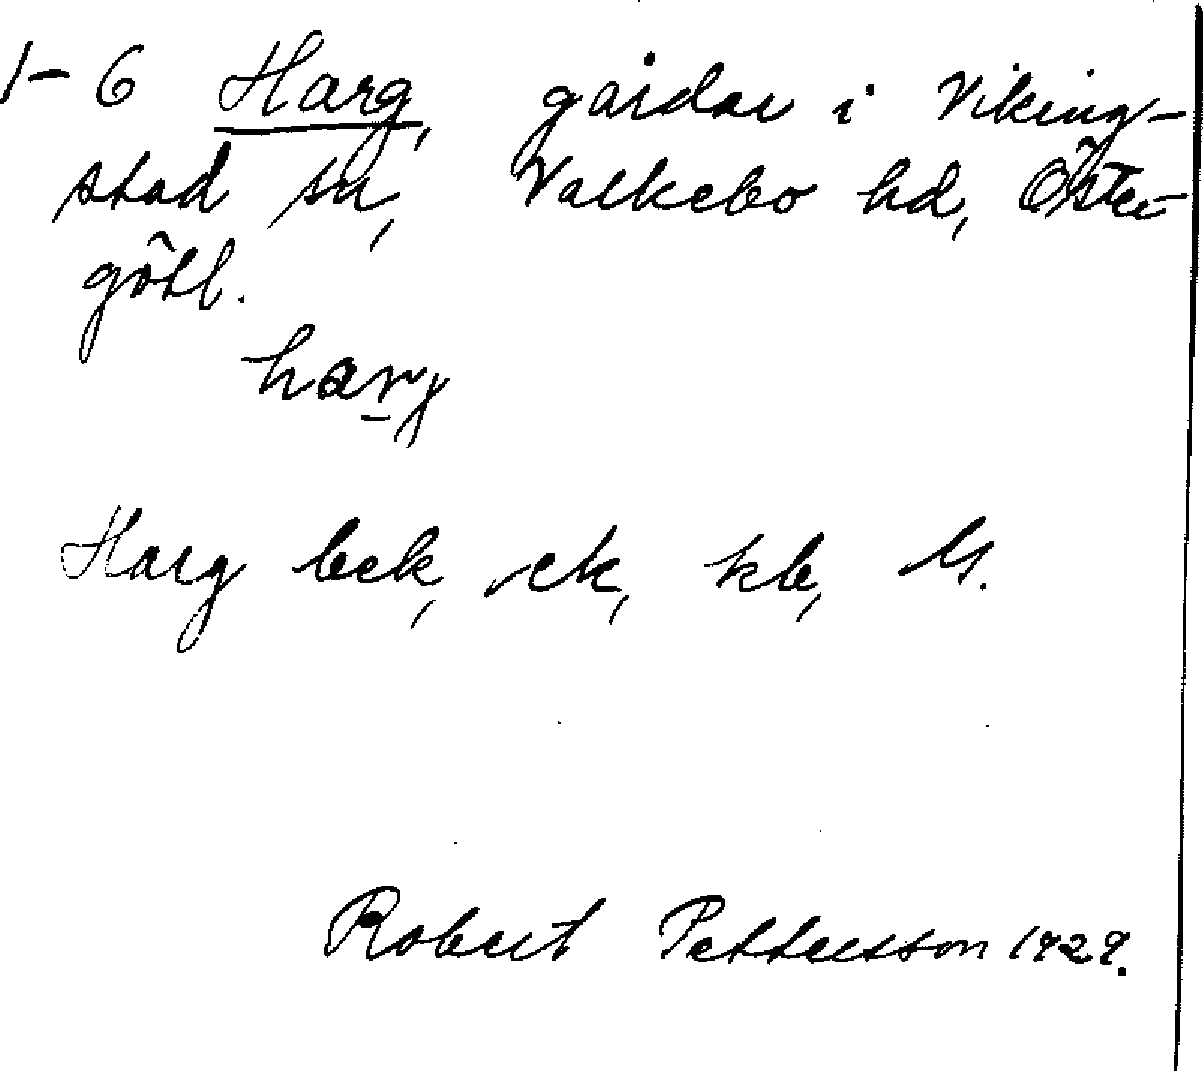 1-6 Harg, gårdar i Viking-
stad sn, Valkebo hd, Öster-
götl.
harj
Harg bek, ek, kb, M.
Robert Pettersson 1929.